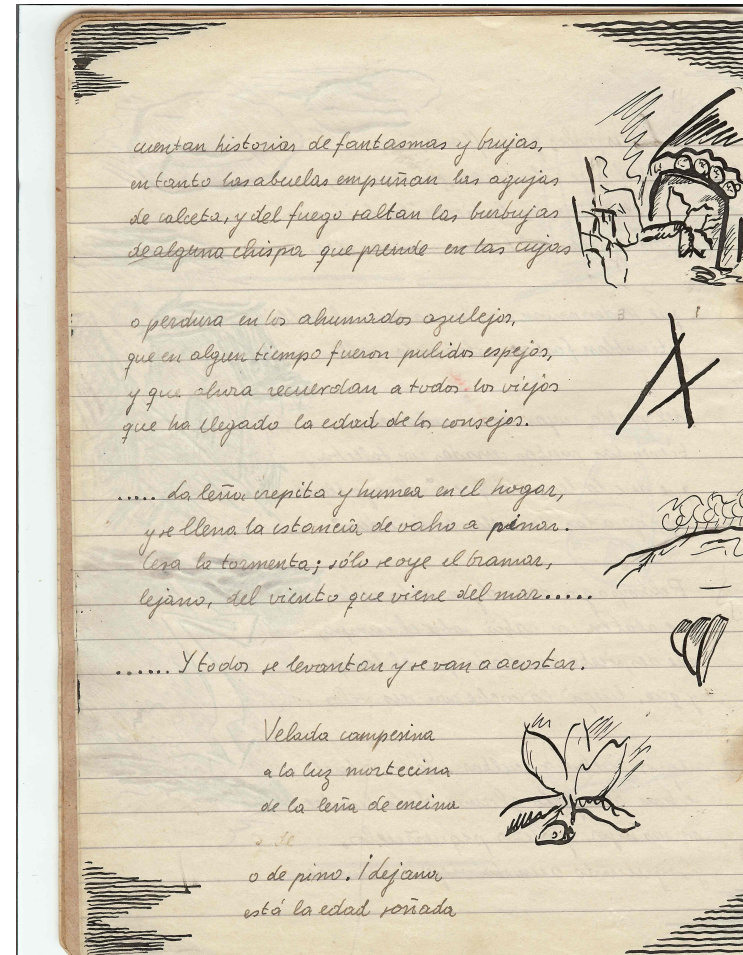 cuentan historias de fantasmas y brujas,
en tanto las abuelas empuñan las agujas
de calceta, y del fuego saltan las burbujas
de alguna chispa que prende en las cujas
o perdura en los ahumados azulejos,
que en algun tiempo fueron pulidos espejos,
y que ahora recuerdan a todos los viejos
que ha llegado la edad de los consejos.
..... La leña crepita y humea en el hogar,
y se llena la estancia de vaho a pinar.
Cesa la tormenta; sólo se oye el bramar,
lejano, del viento que viene del mar.....
...... Y todos se levantan y se van a acostar.
Velada campesina
a la luz mortecina
de la leña de encina
o de pino. ¡dejana
está la edad soñada